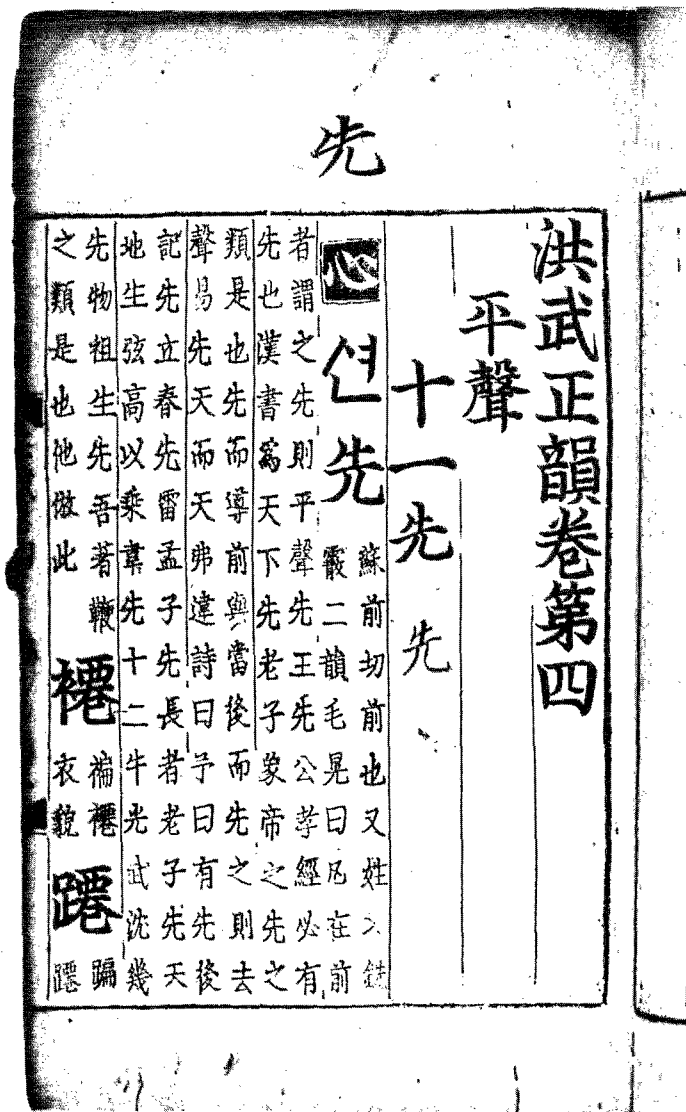 先
洪武正韻卷第四
平聲
十一先 先
心 션 先 蘇前切前也又姓又銑
霰二韻毛晃曰凡在前
者謂之先則平聲先王先公孝經必有
先也漢書爲天下先老子象帝之先之
類是也先而導前與當後而先之則去
聲易先天而天弗違詩曰予曰有先後
記先立春先雷孟子先長者老子先天
地生弦高以乘韋先十二牛光武沈幾
先物祖生先吾著鞭
之類是也他倣此
褼 褊褼
衣貌
蹮 蹁
蹮